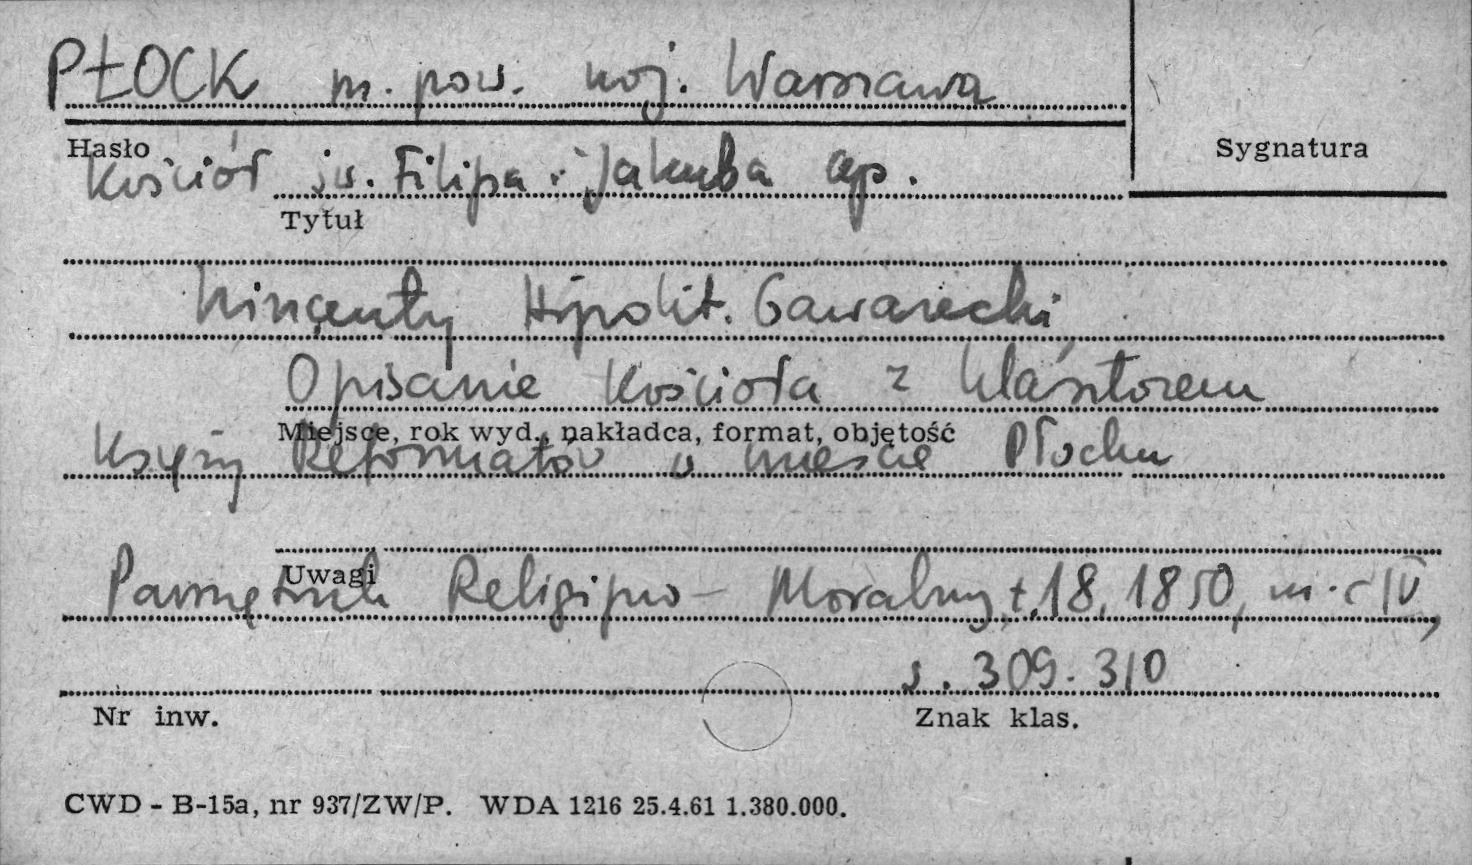 PŁOCK m. pow. woj. Warszawa
Hasło
Sygnatura
Kościół św. Filipa i Jakuba ap.
Tytuł
Wincenty Hipolit. Gawarecki
Opisanie kościoła z klasztorem
Miejsce, rok wyd., nakładca, format, objętość
Księży Reformatów w mieście Płocku
Uwagi
Pamiętnik Religijno - Moralny, t. 18, 1850,
s. 309-310
Nr inw.
Znak klas.
CWD - B-15a, nr 937/ZW/P. WDA 1216 25.4.61 1.380.000.